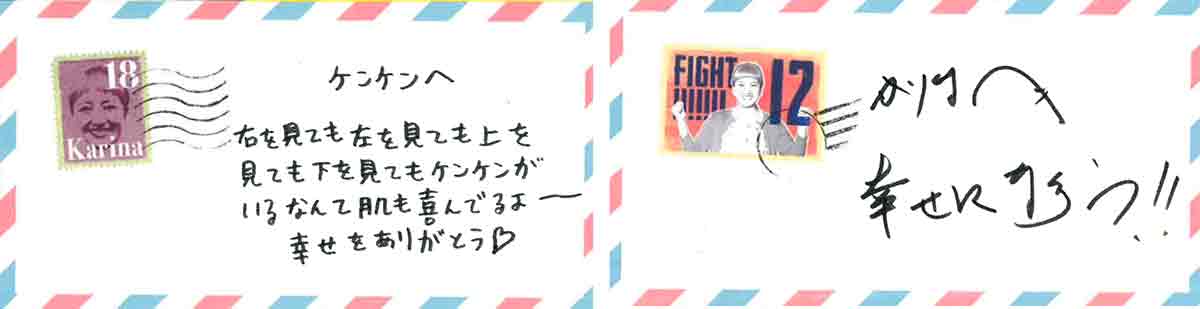 18
Karina
ケンケンへ
右を見ても左を見ても上を
見ても下を見てもケンケンが
いるなんて肌も喜んでるよ〜
幸せをありがとう♡
FIGHT
!!!!!!!
12
かりなへ
幸せになろう!!